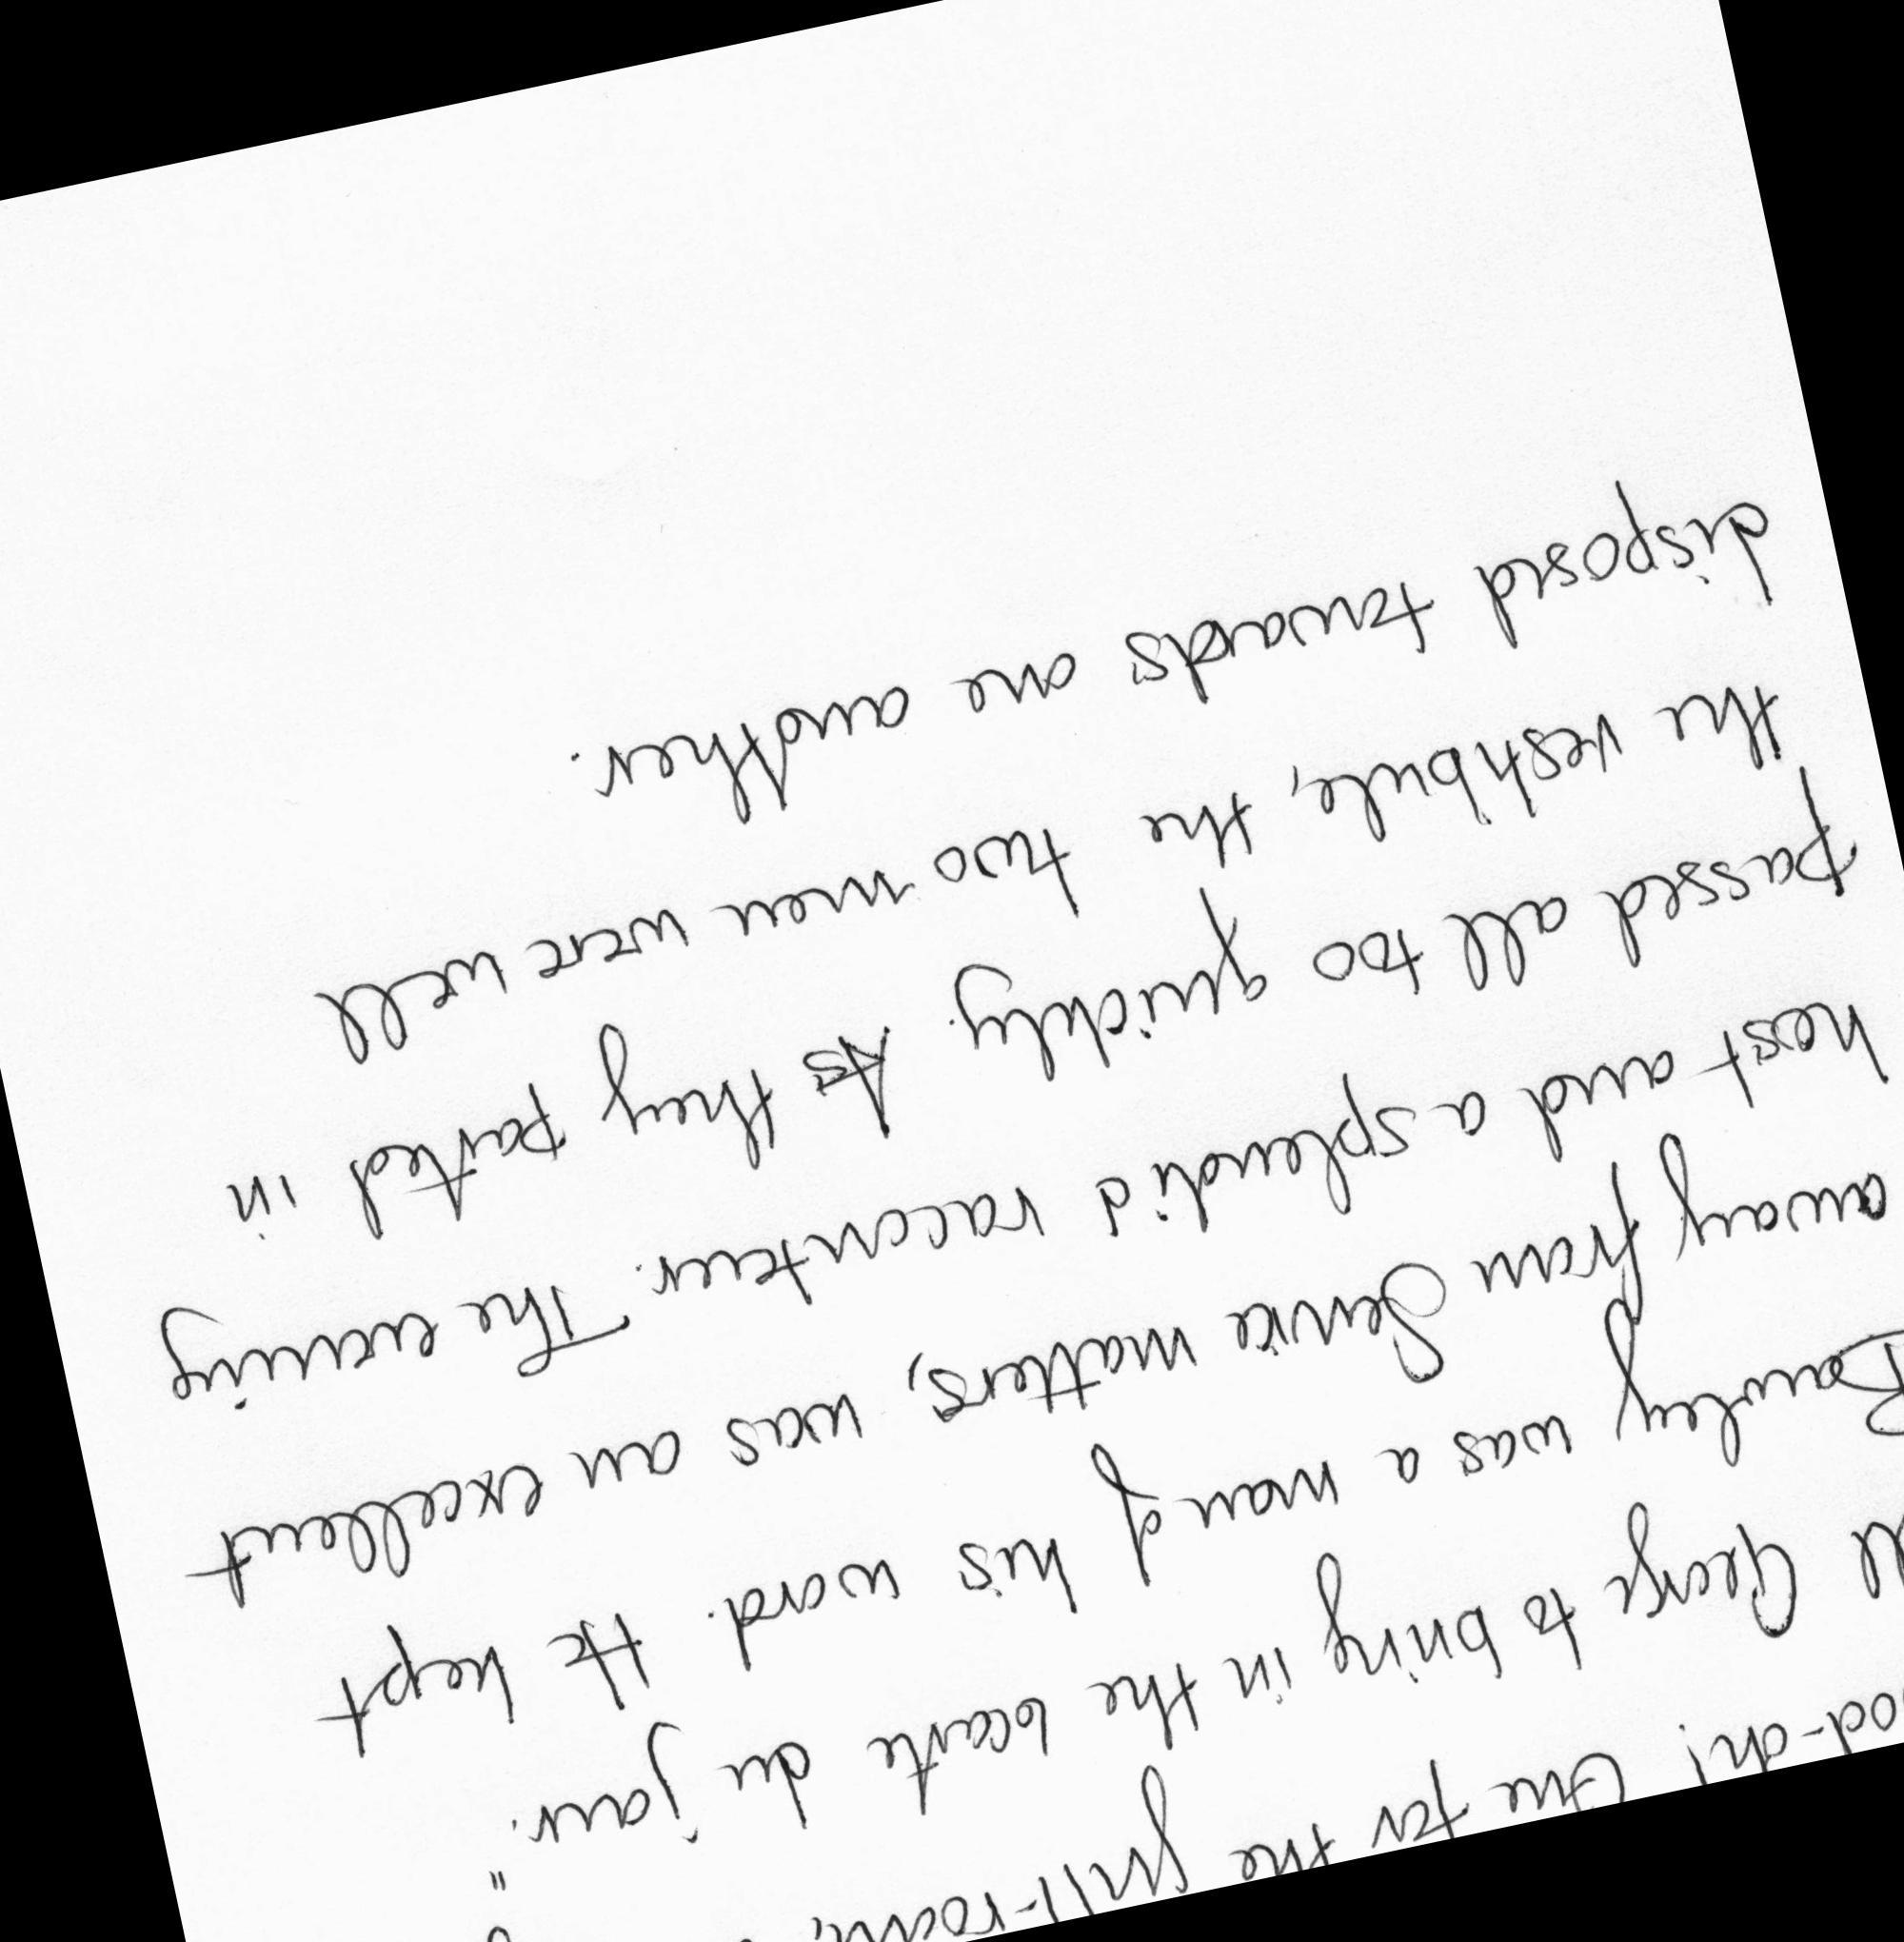 for the grill-room,
George to bring in the carte du jour."
Bawley was a man of his word. He kept
away from Service matters, was an excellent
host and a splendid raconteur. The evening
passed all too quickly. As they parted in
the vestibule, the two men were well
disposed towards one another.